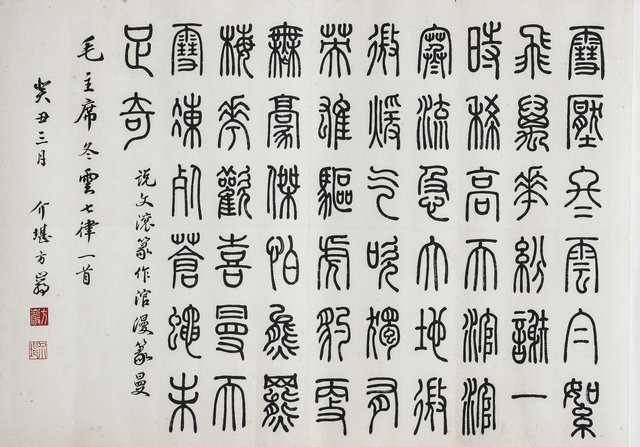 雪壓冬雲白絮
飛萬花紛謝一
時稀高天涫涫
寒流急大地微
微煖气吹獨有
英雄驅虎豹更
無豪傑怕熊羆
梅花歡喜曼天
雪凍死蒼蠅未
足奇
説文滾篆作涫漫篆曼
毛主席冬雲七律一首
癸丑三月 介堪方